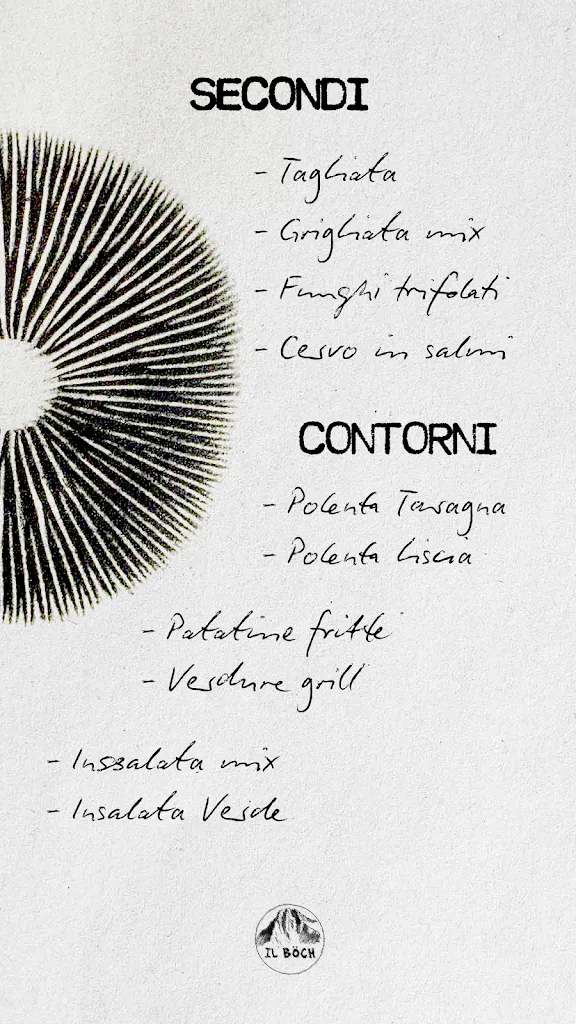 SECONDI
- Tagliata
- Grigliata mix
- Funghi trifolati
- Cervo in salmi
CONTORNI
- Polenta Taragna
- Polenta liscia
- Patatine fritte
- Verdure grill
- Inssalata mix
- Insalata Verde
IL BÖCH